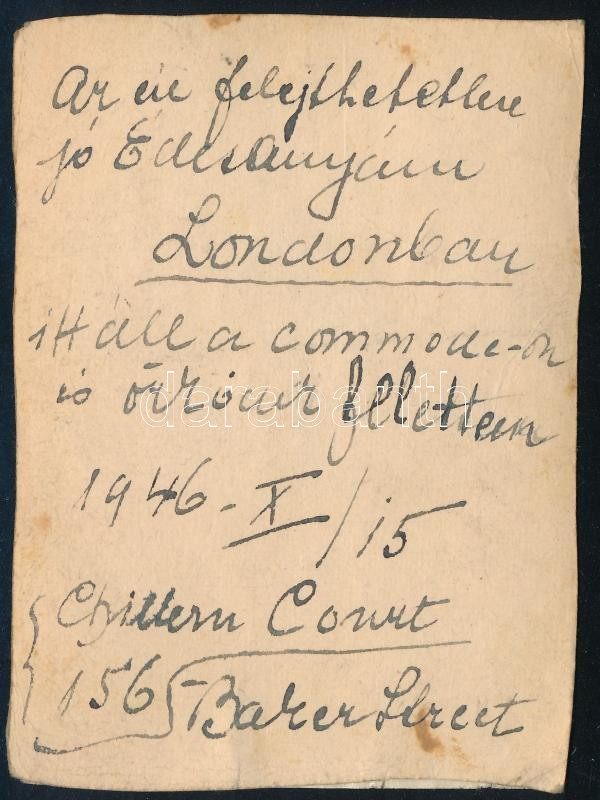 Az én felejthetetlen
jó Édesanyám
Londonban
itt áll a commode-on
is őrzőm felettem
1946-X/15
Chiltern Court
156 Baker Street
darabanth